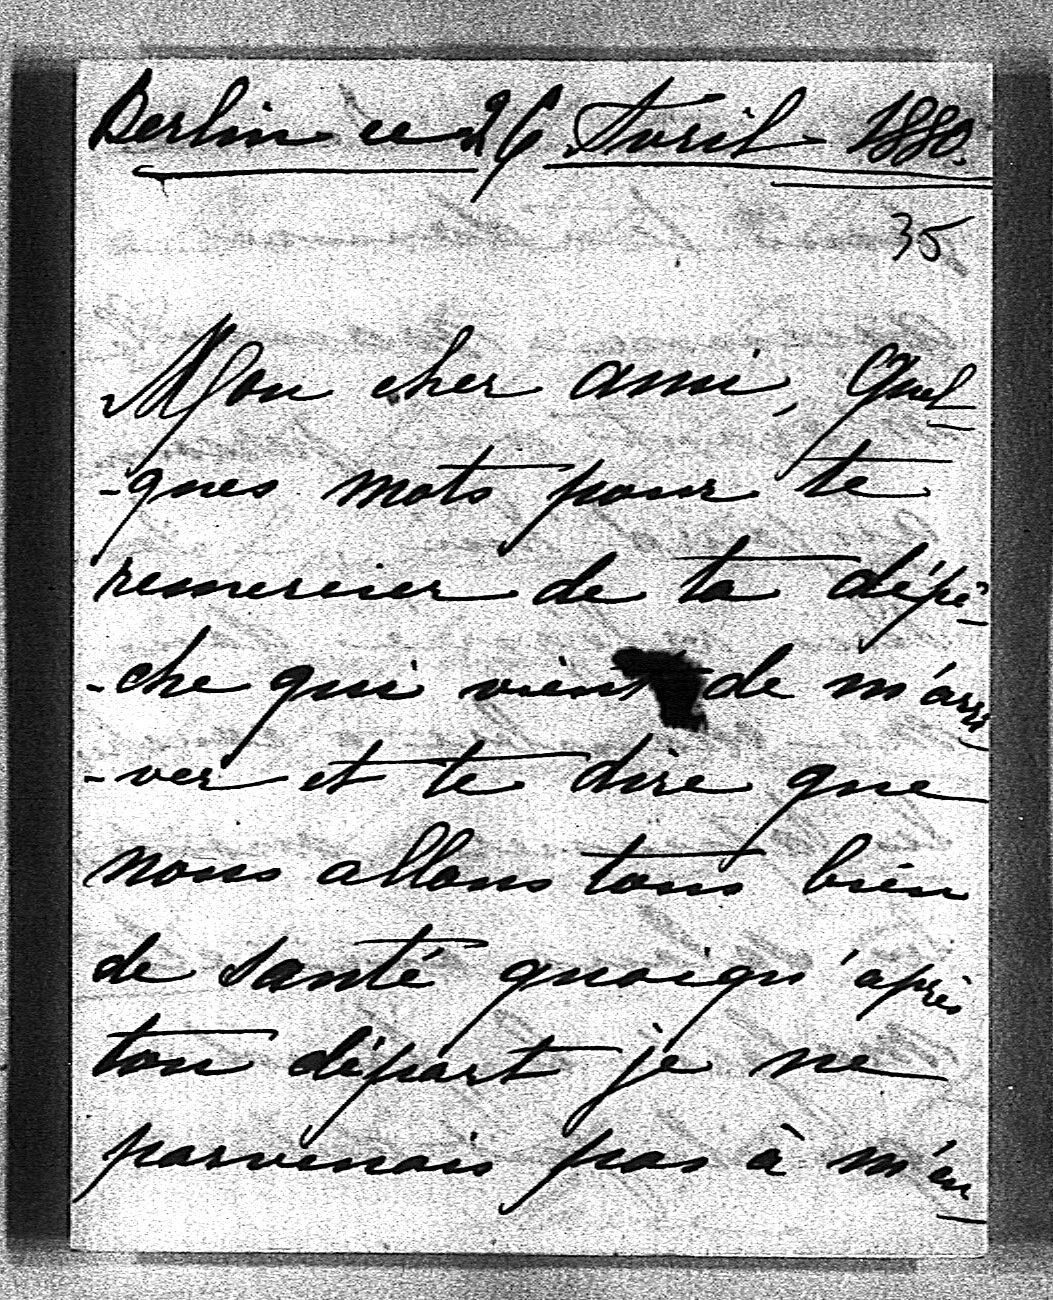 Berlin ce 26 Avril - 1880.
35
Mon cher ami, Quel-
-ques mots pour te
remercier de ta dépê-
-che qui vient de m'arri-
-ver et te dire que
nous allons tous bien
de santé quoiqu'après
ton départ je ne
parvenais pas à m'en-